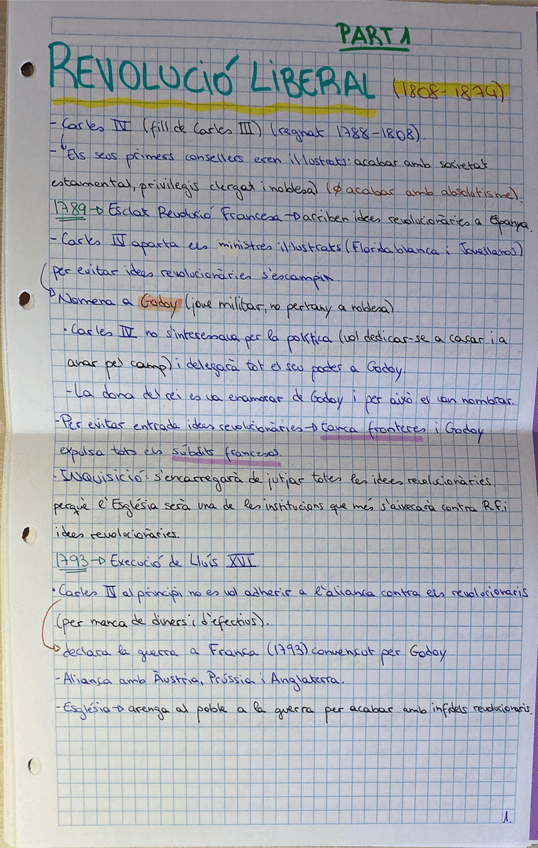 PART 1
REVOLUCIÓ LIBERAL (1808-1874)
- Carles IV (fill de Carles III) (regnat 1788-1808)
- Els seus primers consellers eren il·lustrats: acabar amb societat
estamental, privilegis clergat i noblesa) (∅ acabar amb absolutisme).
1789 → Esclat Revolució Francesa → arriben idees revolucionàries a Espanya.
- Carles IV aparta els ministres il·lustrats (Floridablanca i Jovellanos)
(per evitar idees revolucionàries s'escampin.
→ Nomena a Godoy (jove militar, no pertany a noblesa)
· Carles IV no s'interessava per la política (vol dedicar-se a casar i a
anar pel camp) i delegarà tot el seu poder a Godoy.
- La dona del rei es va enamorar de Godoy i per això el van nombrar.
- Per evitar entrada idees revolucionàries → tanca fronteres i Godoy
expulsa tots els súbdits francesos.
- INQUISICIÓ: s'encarregarà de jutjar totes les idees revolucionàries,
perquè l'Església serà una de les institucions que més s'aixecarà contra R.F. i
idees revolucionàries.
1793 → Execució de Lluís XVI
· Carles IV al principi no es vol adherir a l'aliança contra els revolucionaris
(per manca de diners i d'efectius).
→ declara la guerra a França (1793) convençut per Godoy
- Aliança amb Àustria, Prússia i Anglaterra.
- Església → arenga al poble a la guerra per acabar amb infidels revolucionaris.
1.